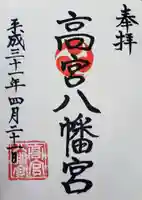 奉拝
高宮八幡宮
平成三十一年四月二十一日